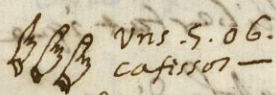 vns .5. 06.
cafissos —